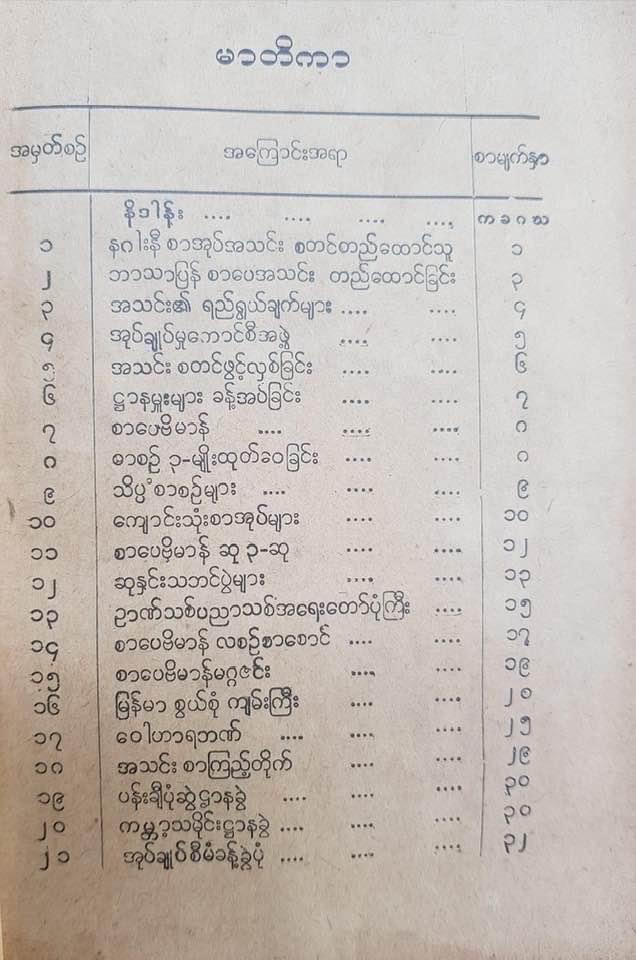 မာတိကာ
အမှတ်စဉ် အကြောင်းအရာ စာမျက်နှာ
နိဒါန်း .... .... .... .... က ခ ဂ ဃ
၁ နဂါးနီ စာအုပ်အသင်း စတင်တည်ထောင်သူ ၁
၂ ဘာသာပြန် စာပေအသင်း တည်ထောင်ခြင်း ၃
၃ အသင်း၏ ရည်ရွယ်ချက်များ .... .... ၄
၄ အုပ်ချုပ်မှုကောင်စီအဖွဲ့ .... .... ၅
၅ အသင်း စတင်ဖွင့်လှစ်ခြင်း .... .... ၆
၆ ဋ္ဌာနမှူးများ ခန့်အပ်ခြင်း .... .... ၇
၇ စာပေဗိမာန် .... .... .... ၈
၈ စာစဉ် ၃-မျိုးထုတ်ဝေခြင်း .... .... ၈
၉ သိပ္ပံစာစဉ်များ .... .... .... ၉
၁၀ ကျောင်းသုံးစာအုပ်များ .... .... ၁၀
၁၁ စာပေဗိမာန် ဆု ၃-ဆု .... .... ၁၂
၁၂ ဆုနှင်းသဘင်ပွဲများ .... .... ၁၃
၁၃ ဉာဏ်သစ်ပညာသစ်အရေးတော်ပုံကြီး .... ၁၅
၁၄ စာပေဗိမာန် လစဉ်စာစောင် .... .... ၁၇
၁၅ စာပေဗိမာန်မဂ္ဂဇင်း .... .... ၁၉
၁၆ မြန်မာ့ စွယ်စုံ ကျမ်းကြီး .... .... ၂၀
၁၇ ဝေါဟာရဘဏ် .... .... .... ၂၅
၁၈ အသင်း စာကြည့်တိုက် .... .... ၂၉
၁၉ ပန်းချီပုံဆွဲဋ္ဌာနခွဲ .... .... .... ၃၀
၂၀ ကမ္ဘာ့သမိုင်းဋ္ဌာနခွဲ .... .... .... ၃၀
၂၁ အုပ်ချုပ်စီမံခန့်ခွဲပုံ .... .... .... ၃၂